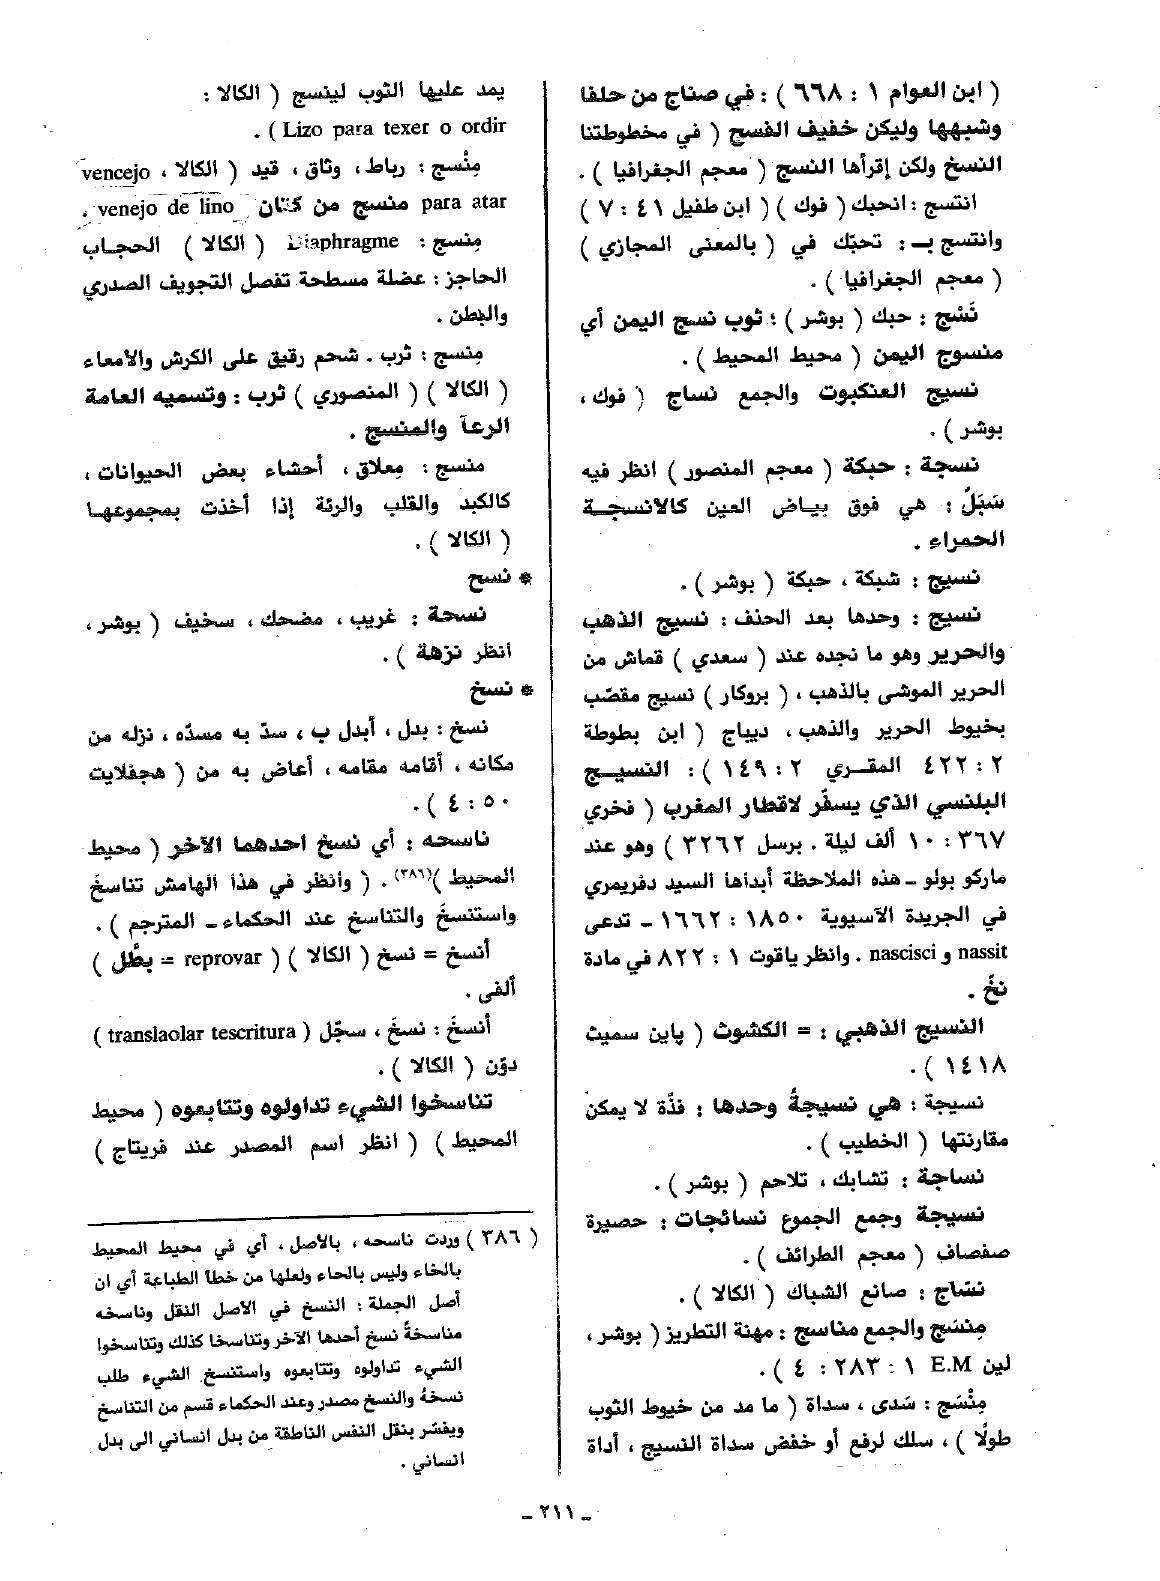 ( ابن العوام ١ : ٦٦٨ ) : في صناج من حلفا
وشبهها وليكن خفيف الفسج ( في مخطوطتنا
النسخ ولكن إقرأها النسج ( معجم الجغرافيا ) .
انتسج : انحبك ( فوك ) ( ابن طفيل ٤١ : ٧ )
وانتسج بـ : تحبّك في ( بالمعنى المجازي )
( معجم الجغرافيا ) .
نَسْج : حبك ( بوشر ) ؛ ثوب نسج اليمن أي
منسوج اليمن ( محيط المحيط ) .
نسيج العنكبوت والجمع نساج ( فوك ،
بوشر ) .
نسجة : حبكة ( معجم المنصور ) انظر فيه
سَبَلٌ : هي فوق بياض العين كالانسجة
الحمراء .
نسيج : شبكة ، حبكة ( بوشر ) .
نسيج : وحدها بعد الحنف : نسيج الذهب
والحرير وهو ما نجده عند ( سعدي ) قماش من
الحرير الموشى بالذهب ، ( بروكار ) نسيج مقصّب
بخيوط الحرير والذهب ، ديباج ( ابن بطوطة
٢ : ٤٢٢ المقري ٢ : ١٤٩ ) : النسيج
البلنسي الذي يسفّر لاقطار المغرب ( فخري
٣٦٧ : ١٠ ألف ليلة . برسل ٣٢٦٢ ) وهو عند
ماركو بولو ـ هذه الملاحظة أبداها السيد دفريمري
في الجريدة الآسيوية ١٨٥٠ : ١٦٦٢ ـ تدعى
nassit و nascisci . وانظر ياقوت ١ : ٨٢٢ في مادة
نخّ .
النسيج الذهبي : = الكشوث ( پاين سميث
١٤١٨ ) .
نسيجة : هي نسيجةُ وحدها : فذّة لا يمكن
مقارنتها ( الخطيب ) .
نساجة : تشابك ، تلاحم ( بوشر ) .
نسيجة وجمع الجموع نسائجات : حصيرة
صفصاف ( معجم الطرائف ) .
نسّاج : صانع الشباك ( الكالا ) .
مِنسَج والجمع مناسج : مهنة التطريز ( بوشر ،
لين E.M ١ : ٢٨٣ : ٤ ) .
مِنْسَج : سَدى ، سداة ( ما مد من خيوط الثوب
طولًا ) ، سلك لرفع أو خفض سداة النسيج ، أداة
يمد عليها الثوب لينسج ( الكالا :
Lizo para texer o ordir ) .
مِنْسج : رباط ، وثاق ، قيد ( الكالا ، vencejo
para atar منسج من كتان venejo de lino .
مِنسج : Diaphragme ( الكالا ) الحجاب
الحاجز : عضلة مسطحة تفصل التجويف الصدري
والبطن .
مِنسج : ثرب . شحم رقيق على الكرش والأمعاء
( الكالا ) ( المنصوري ) ثرب : وتسميه العامة
الرعآ والمنسج .
منسج : مِعلاق ، أحشاء بعض الحيوانات ،
كالكبد والقلب والرئة إذا أخذت بمجموعها
( الكالا ) .
* نسح
نسحة : غريب ، مضحك ، سخيف ( بوشر ،
انظر نزهة ) .
* نسخ
نسخ : بدل ، أبدل ب ، سدّ به مسدّه ، نزله من
مكانه ، أقامه مقامه ، أعاض به من ( هجفلايت
٥٠ : ٤ ) .
ناسحه : أي نسخ احدهما الآخر ( محيط
المحيط )(٣٨٦) . ( وأنظر في هذا الهامش تناسخَ
واستنسخَ والتناسخ عند الحكماء ـ المترجم ) .
أنسخ = نسخ ( الكالا ) ( reprovar = بطّل )
ألفى .
أنسخَ : نسخَ ، سجّل ( translaolar tescritura )
دوّن ( الكالا ) .
تناسخوا الشيء تداولوه وتتابعوه ( محيط
المحيط ) ( انظر اسم المصدر عند فريتاج )
( ٣٨٦ ) وردت ناسحه ، بالأصل ، أي في محيط المحيط
بالخاء وليس بالحاء ولعلها من خطأ الطباعة أي ان
أصل الجملة : النسخ في الاصل النقل وناسخه
مناسخةً نسخ أحدها الآخر وتناسخا كذلك وتناسخوا
الشيء تداولوه وتتابعوه واستنسخ الشيء طلب
نسخهُ والنسخ مصدر وعند الحكماء قسم من التناسخ
ويفسّر بنقل النفس الناطقة من بدل انساني الى بدل
انساني .
ـ ٢١١ ـ